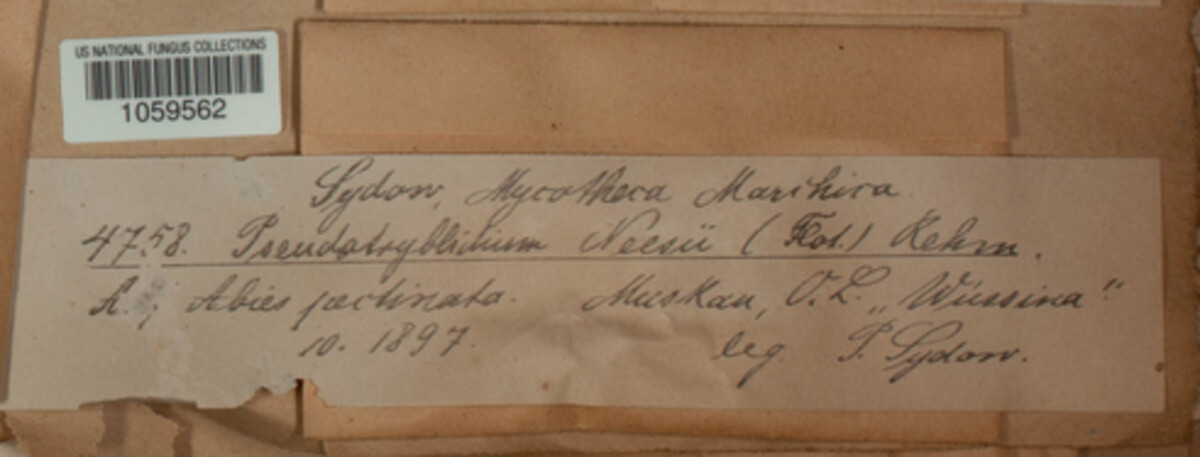 US NATIONAL FUNGUS COLLECTIONS
1059562
Sydow, Mycotheca Marchica.
4758. Pseudotryblidium Neesii (Flot.) Rehm.
A. Abies pectinata. Muskau, O. L. „Wussina"
10. 1897. leg. P. Sydow.